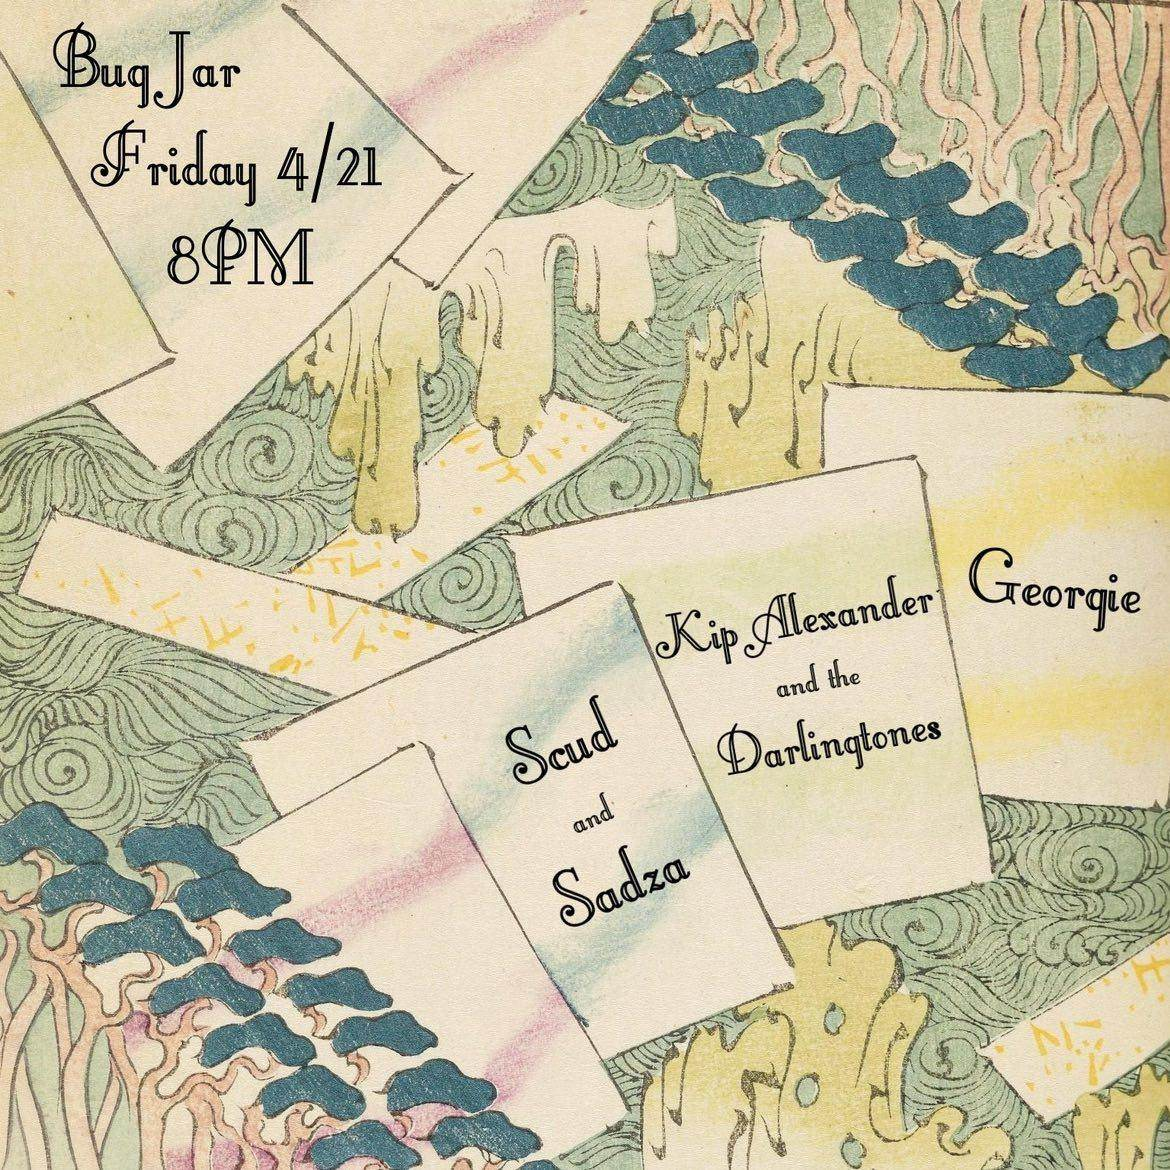 Bug Jar
Friday 4/21
8PM
Georgie
Kip Alexander
and the
Darlingtones
Scud
and
Sadza